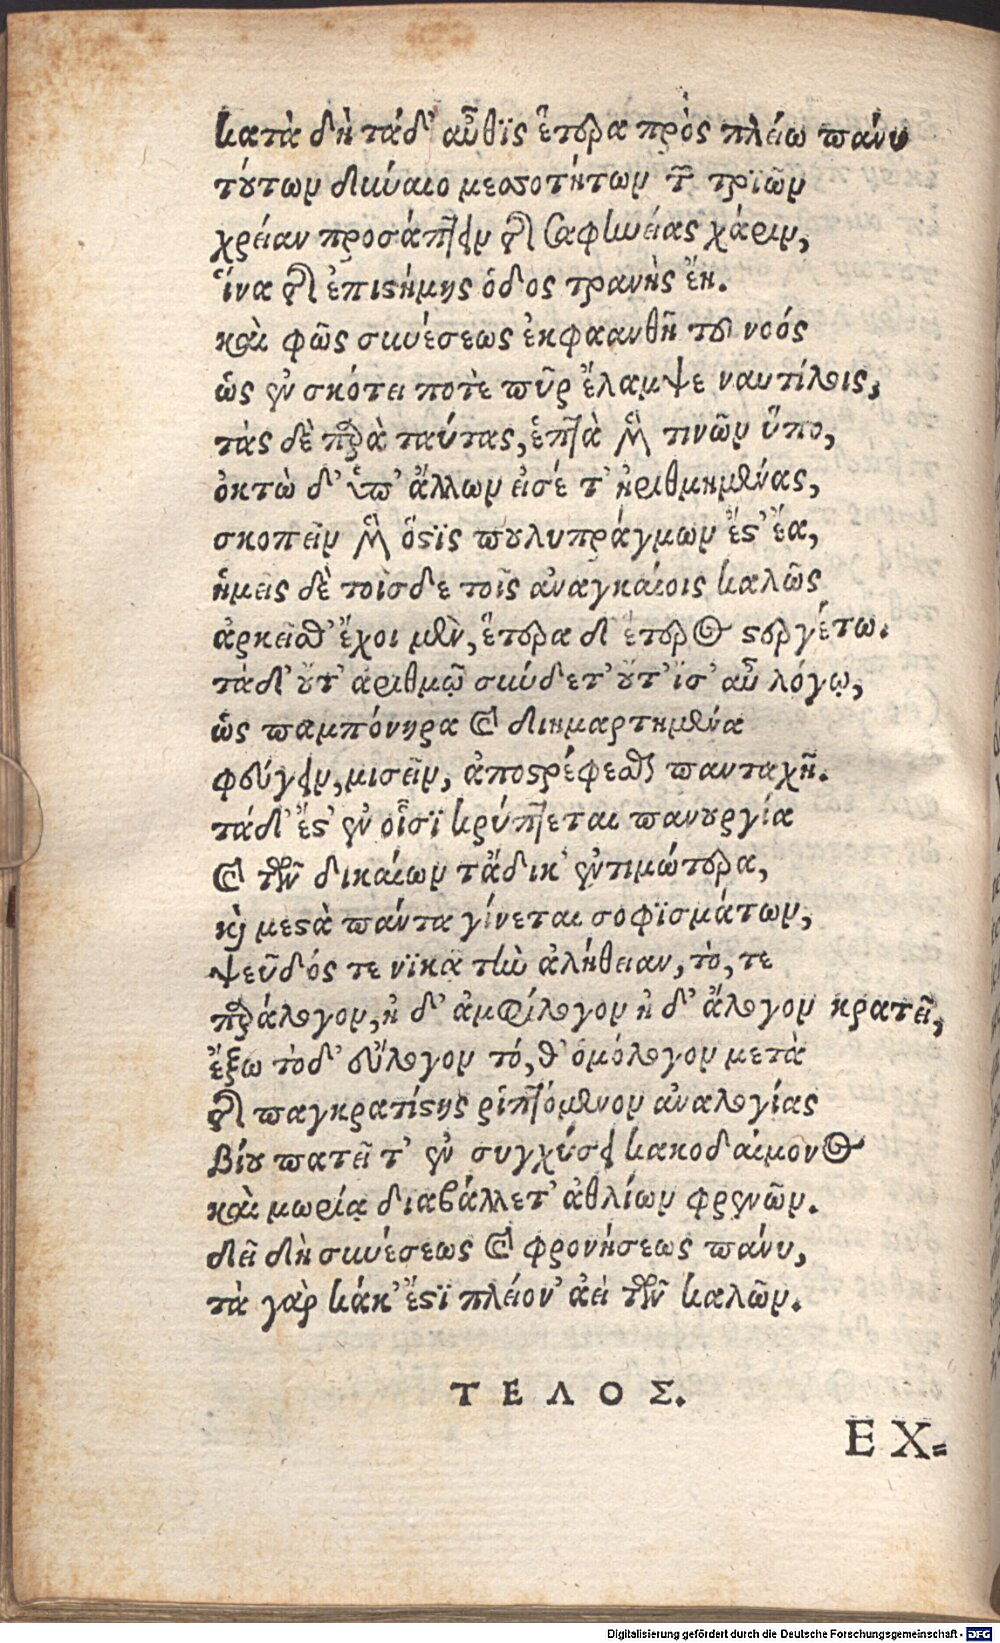 κατὰ δὴ τάδ' αὖθϊς ἕτερα πρὸς πλείω πάνυ
τούτων δικύαιο μεσοτήτων τῶν τρϊῶν
χρείαν προσάπτειν τῆς σαφηνείας χάριν,
ἵνα τῆς ἐπιστήμης ὁδος τρανὴς ἔη.
καὶ φῶς συνέσεως ἐκφαανθῆ τοῦ νοός
ὡς ἐν σκότει ποτὲ πῦρ ἔλαμψε ναυτίλοις,
τὰς δὲ παρὰ ταύτας, ἑπτὰ μὲν τινῶν ὕπο,
ὀκτὼ δ' ὑπ' ἄλλων εἰσέ τ' ἠριθμημένας,
σκοπεῖν μὲν ὅστϊς πουλυπράγμων ἔστ' ἔα,
ἡμεῖς δὲ τοῖσδε τοῖς ἀναγκαίοις καλῶς
ἀρκεῖσθ' ἔχοι μὲν, ἕτερα δ' ἕτερος στεργέτω.
τὰ δ' οὔτ' ἀριθμῷ σκύδετ' οὔτ' ἴσ' αὖ λόγῳ,
ὡς παμπόνηρα καὶ διημαρτημένα
φεύγειν, μισεῖν, ἀποστρέφεσθαι πανταχῆ.
τάδ' ἔστ' ἐν οἷσϊ κρύπτεται πανουργία
καὶ τῶν δικαίων τἄδικ' ἐντιμώτερα,
καὶ μεστὰ πάντα γίνεται σοφϊσμάτων,
ψεῦδός τε νϊκᾶ τὴν ἀλήθειαν, τὸ, τε
παράλογον, ἠ δ' ἀμφίλογον ἠ δ' ἄλογον κρατεῖ,
ἔξω τὸ δ' εὔλογον τό, θ' ὁμόλογον μετὰ
τῆς παγκρατίστης ῥιπτόμενον ἀναλογίας
βίου πατεῖ τ' ἐν συγχύσει κακοδαίμονος
καὶ μωρίᾳ διαβάλλετ' ἀθλίων φρενῶν.
δεῖ δὴ συνέσεως καὶ φρονήσεως πάνυ,
τὰ γὰρ κάκ' ἔστϊ πλείον' ἀεὶ τῶν καλῶν.
ΤΕΛΟΣ.
EX=
Digitalisierung gefördert durch die Deutsche Forschungsgemeinschaft - DFG